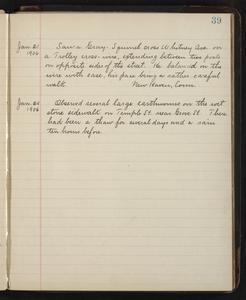 39
Jan. 21 Saw a Gray Squirrel cross Whitney Ave. on
1906 a Trolley cross-wire, extending between two posts
on opposite sides of the street. He balanced on the
wire with ease, his pace being a rather careful
walk. New Haven, Conn.
Jan. 24 Observed several large earthworms on the wet
1906 stone sidewalk on Temple St. near Grove St. There
had been a thaw for several days and a rain
ten hours before.